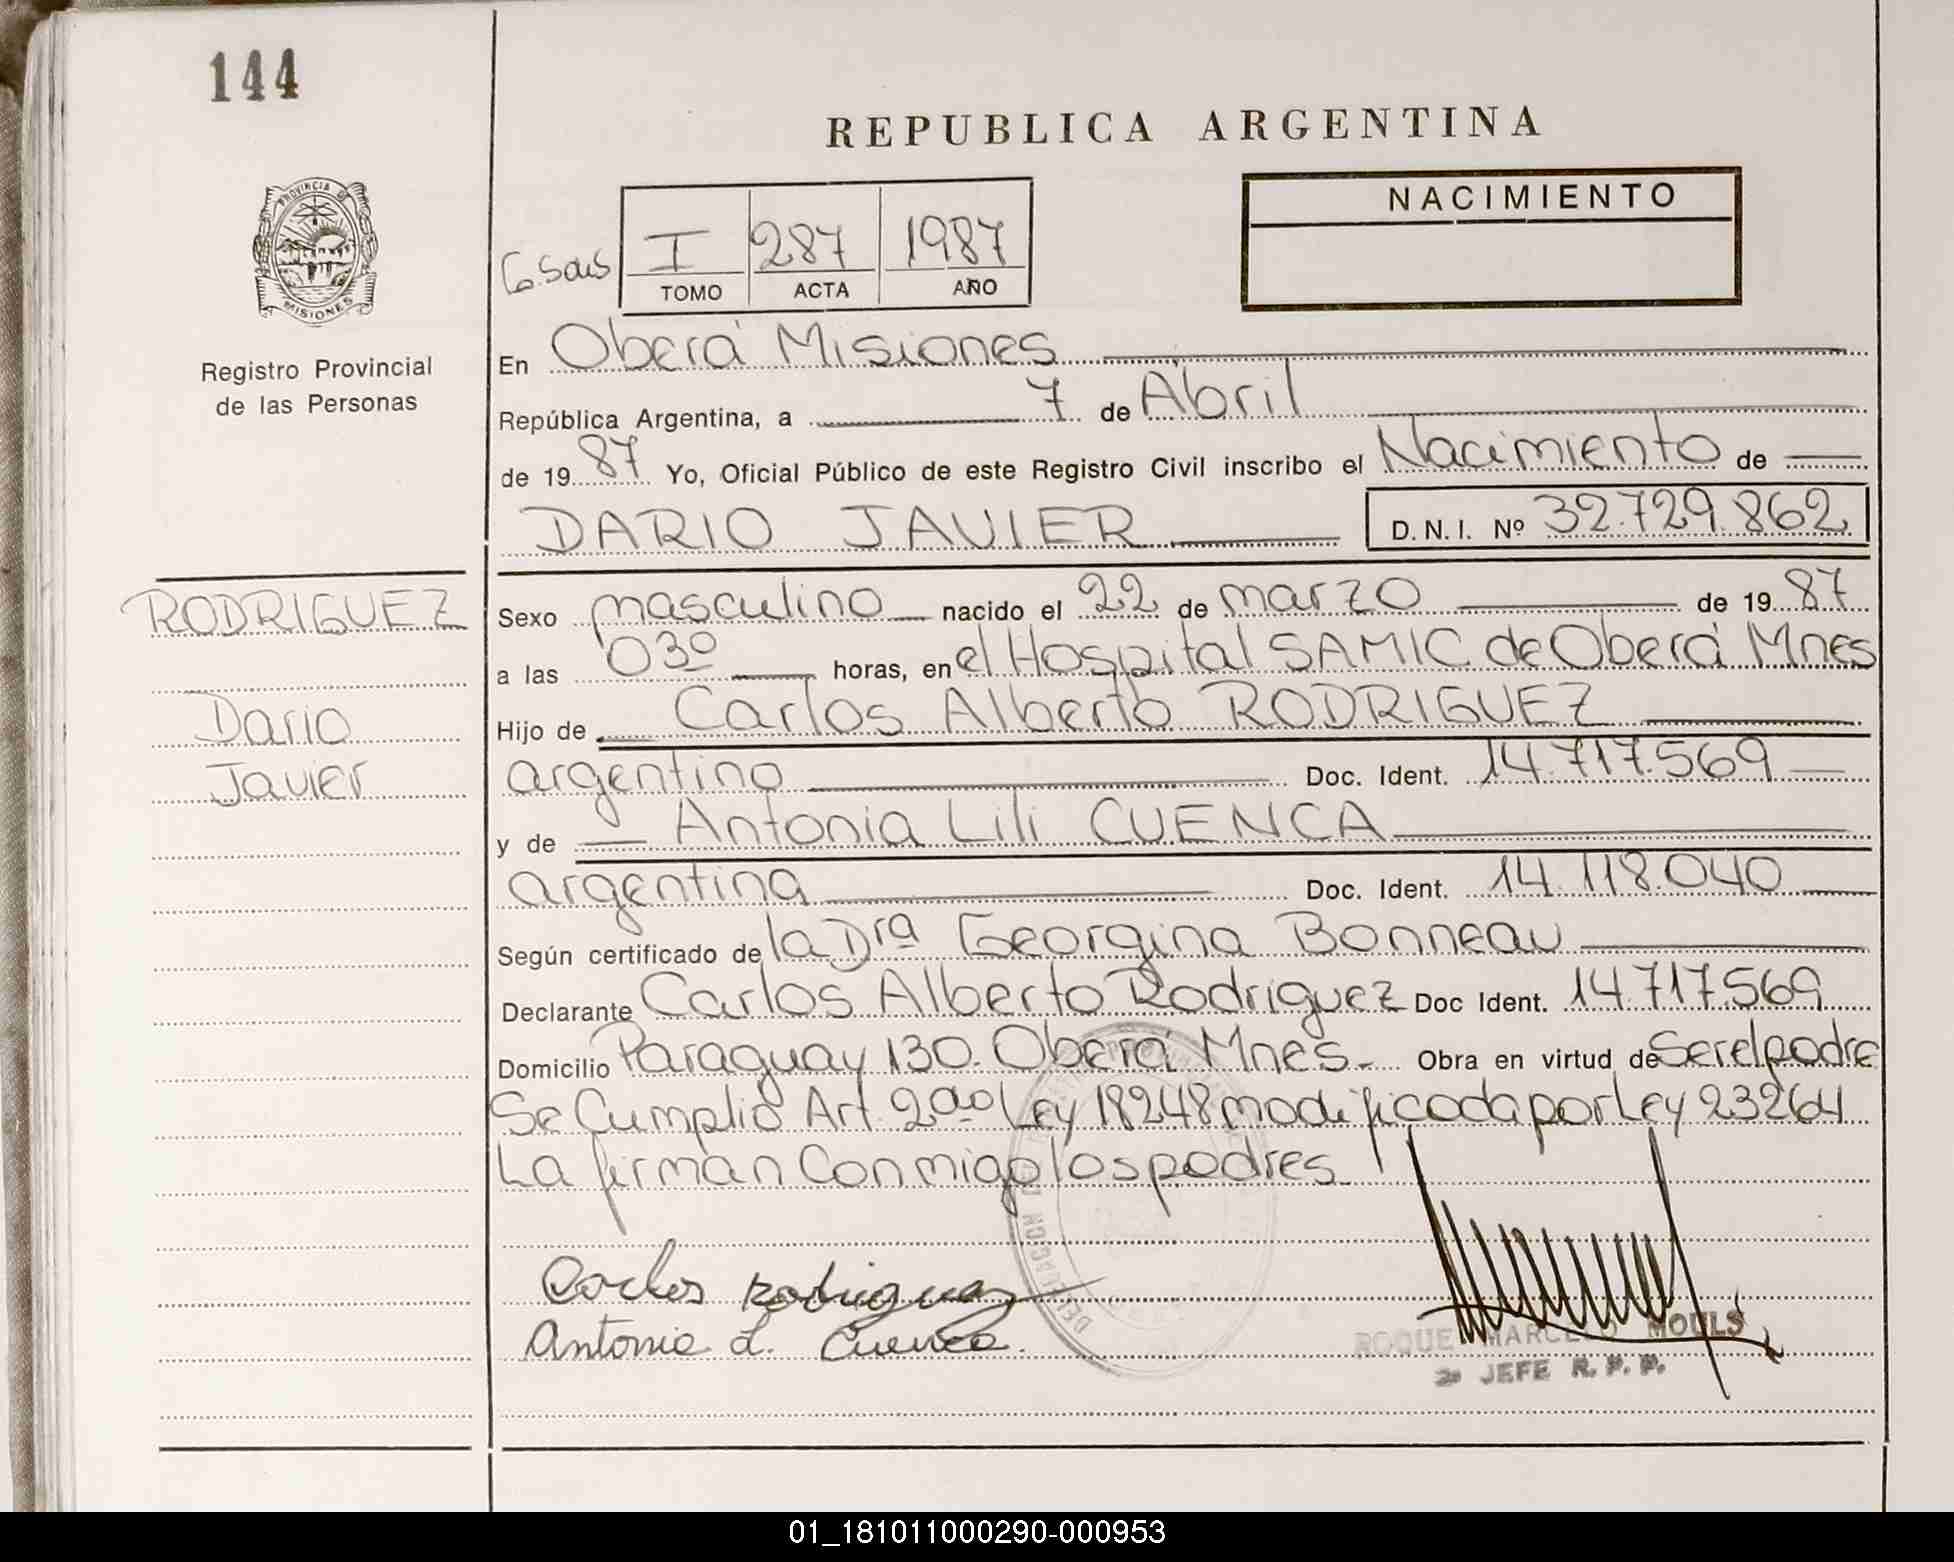 144
REPUBLICA ARGENTINA
PROVINCIA DE
MISIONES
NACIMIENTO
I 287 1987
TOMO ACTA AÑO
Registro Provincial
de las Personas
En Oberá Misiones
República Argentina, a 7 de Abril
de 1987 Yo, Oficial Público de este Registro Civil inscribo el Nacimiento de
DARIO JAVIER D.N.I. Nº 32.729.862
RODRIGUEZ
Dario
Javier
Sexo masculino nacido el 22 de marzo de 1987
a las 03º horas, en el Hospital SAMIC de Oberá Mnes
Hijo de Carlos Alberto RODRIGUEZ
argentino Doc. Ident. 14.717.569
y de Antonia Lili CUENCA
argentina Doc. Ident. 14.118.040
Según certificado de la Dra Georgina Bonneau
Declarante Carlos Alberto Rodriguez Doc Ident. 14.717.569
Domicilio Paraguay 130. Oberá Mnes.- Obra en virtud de Ser el padre
Se Cumplio Art. 2do Ley 18248 modificada por Ley 23264
La firman Conmigo los padres.
Carlos Rodriguez
Antonia L. Cuenca.
ROQUE MARCELO MOULS
2º JEFE R. P. P.
01_181011000290-000953